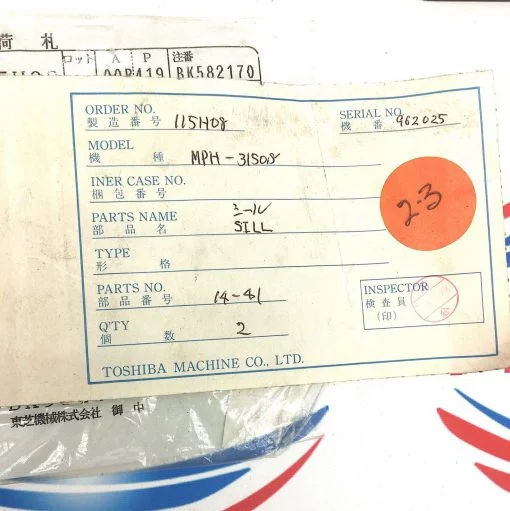 荷札
ロット A P 注番
00P419 BK582170
ORDER NO.
製造番号 115H08
SERIAL NO
機番 962025
MODEL
機種 MPH-3150S
INER CASE NO.
梱包番号
2-3
PARTS NAME ミール
部品名 SILL
TYPE
形格
PARTS NO.
部品番号 14-41
INSPECTOR
検査員
(印)
Q'TY
個数 2
TOSHIBA MACHINE CO., LTD.
東芝機械株式会社 御中